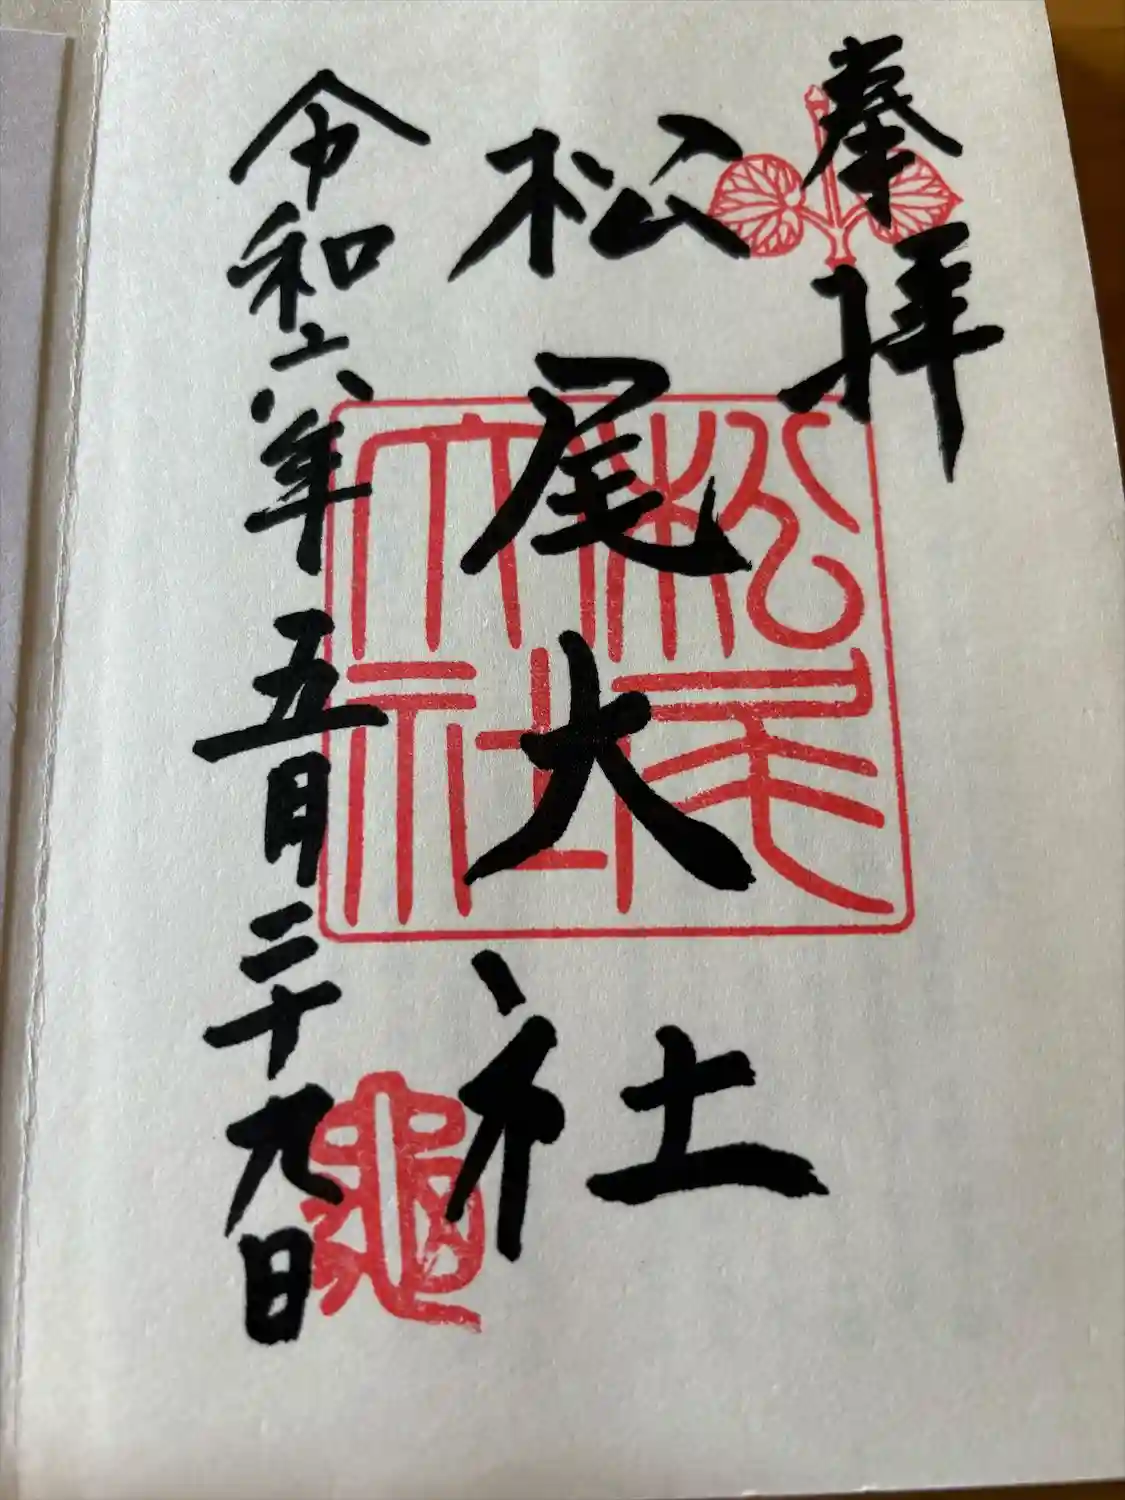 奉拝
松尾大社
令和六年五月二十九日
松尾大社
亀